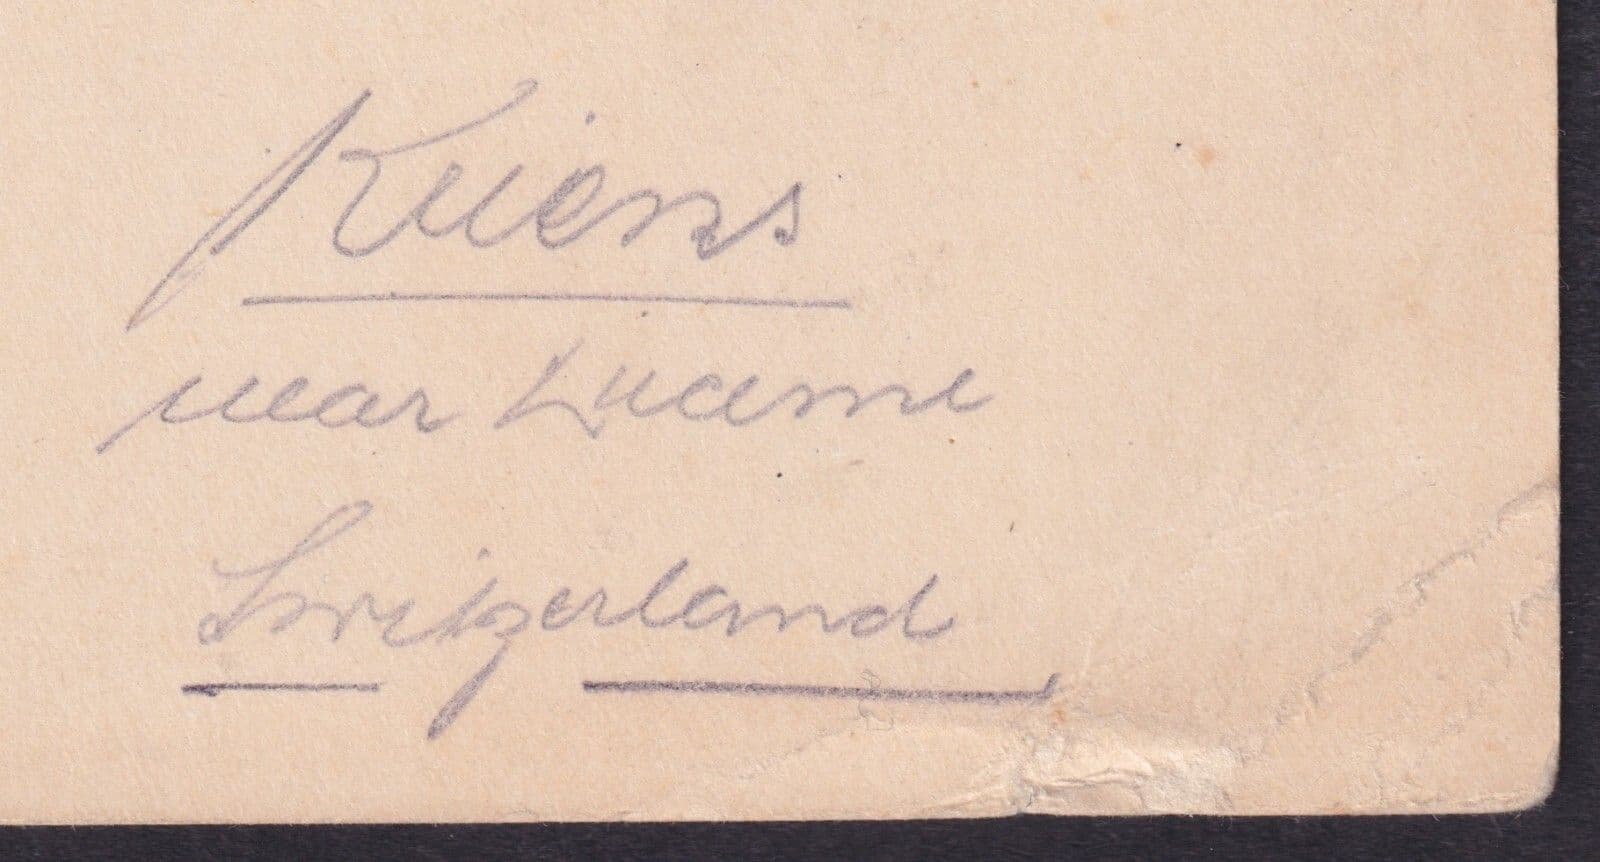 Kriens
near Lucerne
Switzerland